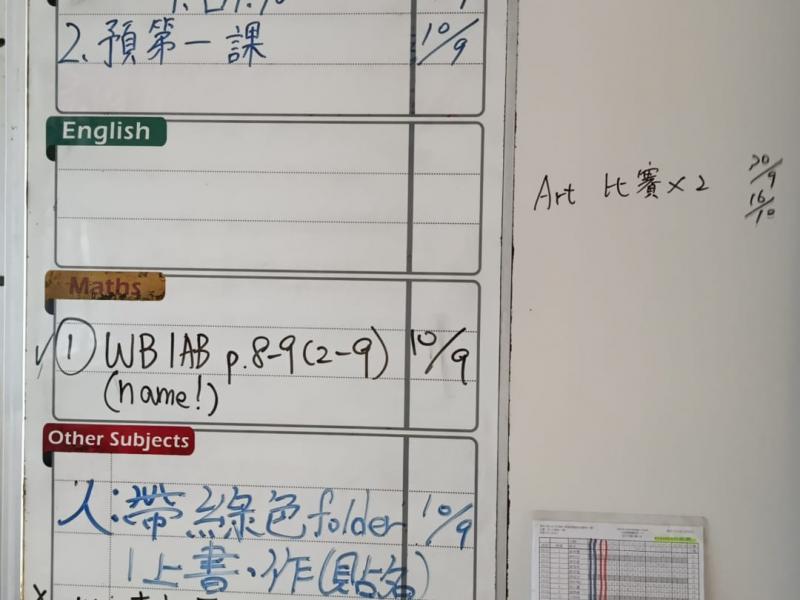 2. 預第一課 10/9
English
Art 比賽×2 30/9
16/10
Maths
① WB 1AB p.8-9(2-9) 10/9
(name!)
Other Subjects
人:帶綠色folder 10/9
1上書、作(貼名)